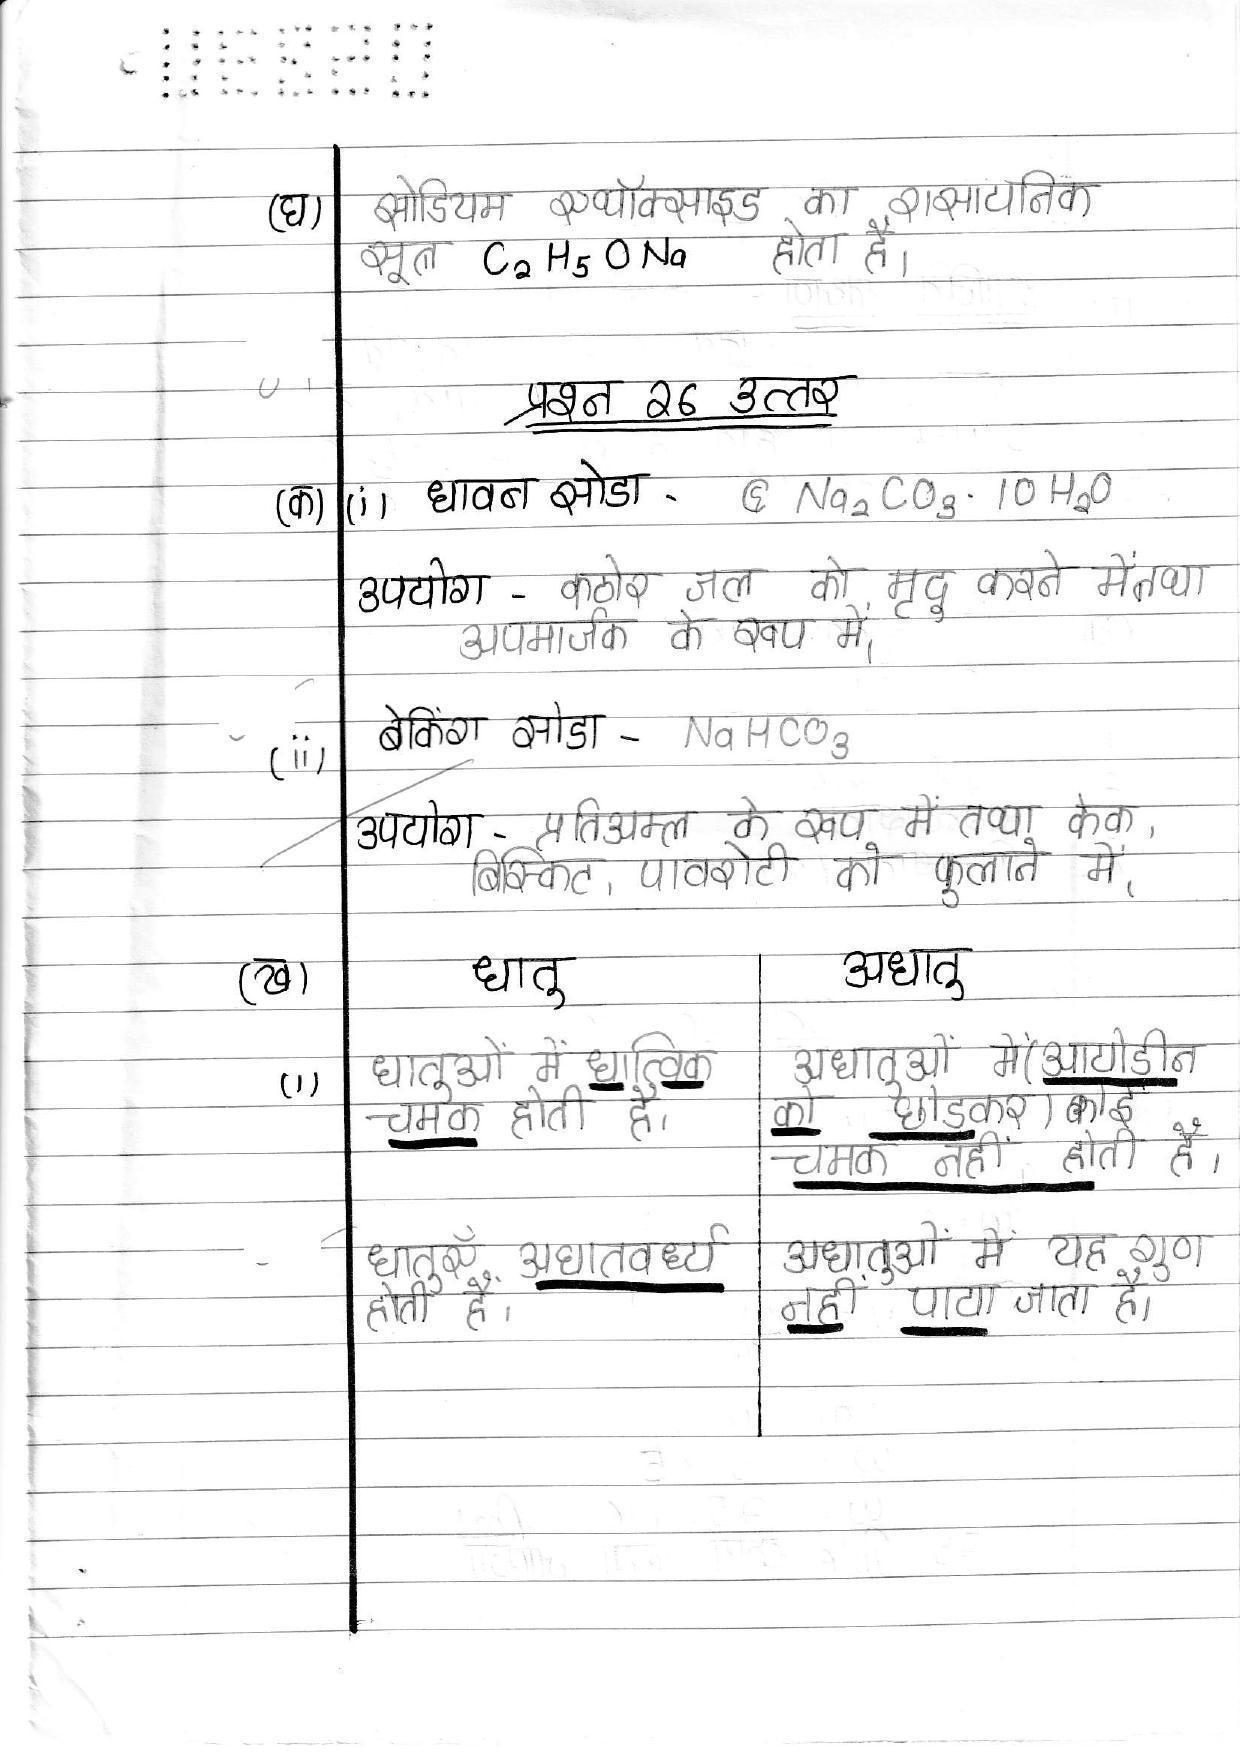 (घ) सोडियम एथॉक्साइड का रासायनिक
सूत्र C2H5ONa होता है।
प्रश्न 26 उत्तर
(क) (i) धावन सोडा - Na2CO3·10H2O
उपयोग - कठोर जल को मृदु करने में तथा
अपमार्जक के रूप में,
(ii) बेकिंग सोडा - NaHCO3
उपयोग - प्रतिअम्ल के रूप में तथा केक,
बिस्किट, पावरोटी को फुलाने में,
(ख) धातु अधातु
(i) धातुओं में धात्विक
चमक होती है।
अधातुओं में (आयोडीन
को छोड़कर) कोई
चमक नहीं होती है।
धातुएँ अघातवर्ध्य
होती है।
अधातुओं में यह गुण
नहीं पाया जाता है।